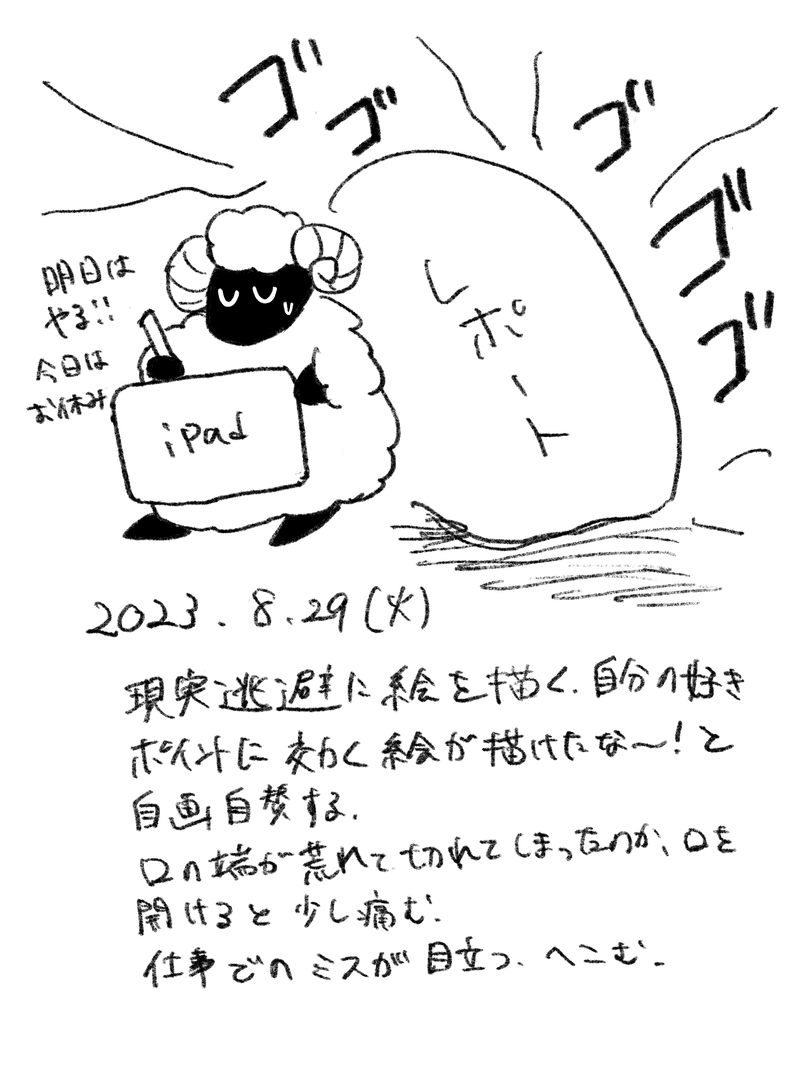 ゴ
ゴ
ゴ
ゴ
ゴ
レポート
明日は
やる!!
今日は
お休み
iPad
2023.8.29(火)
現実逃避に絵を描く.自分の好き
ポイントに効く絵が描けたな〜!と
自画自賛する.
口の端が荒れて切れてしまったのか、口を
開けると少し痛む.
仕事でのミスが目立つ、へこむ.